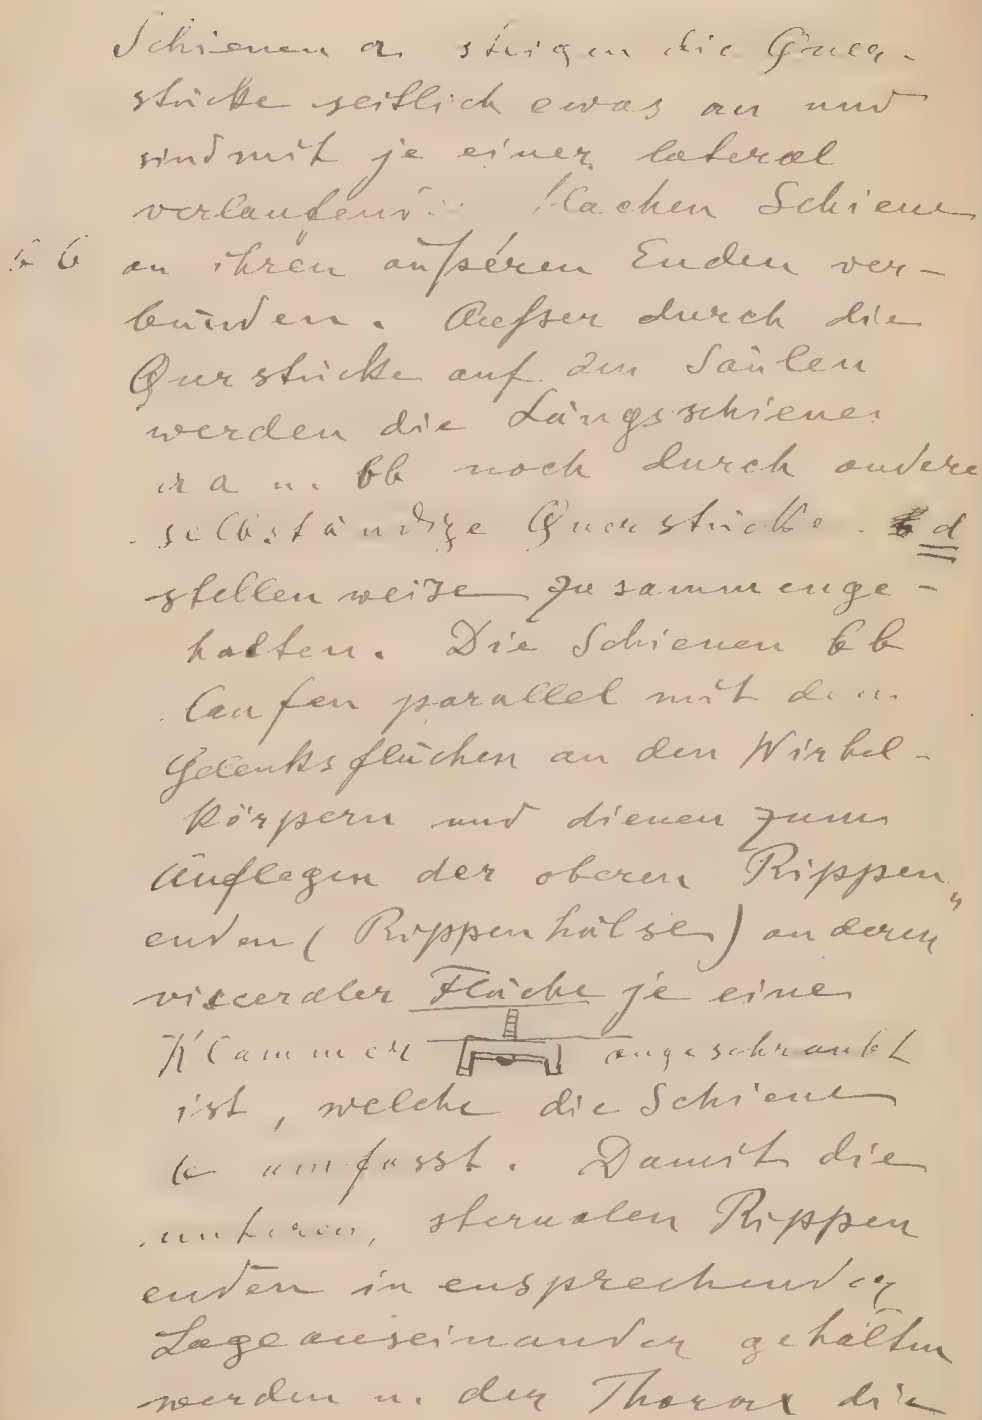 Schienen a steigen die Quer-
stücke seitlich etwas an und
sind mit je einer lateral
verlaufend flachen Schiene
b an ihren äußeren Enden ver-
bunden. Ausser durch die
Querstücke auf den Säulen
werden die Längsschienen
a a u. bb noch durch andere
selbständige Querstücke d
stellenweise zusammenge-
halten. Die Schienen bb
laufen parallel mit den
Gelenksflächen an den Wirbel-
körpern und dienen zum
Auflegen der oberen Rippen
enden (Rippenhälse) an deren
visceraler Fläche je eine
Klammer angeschraubt
ist, welche die Schiene
b umfasst. Damit die
unteren, sternalen Rippen
enden in ensprechender
Lage auseinander gehalten
werden u. der Thorax die